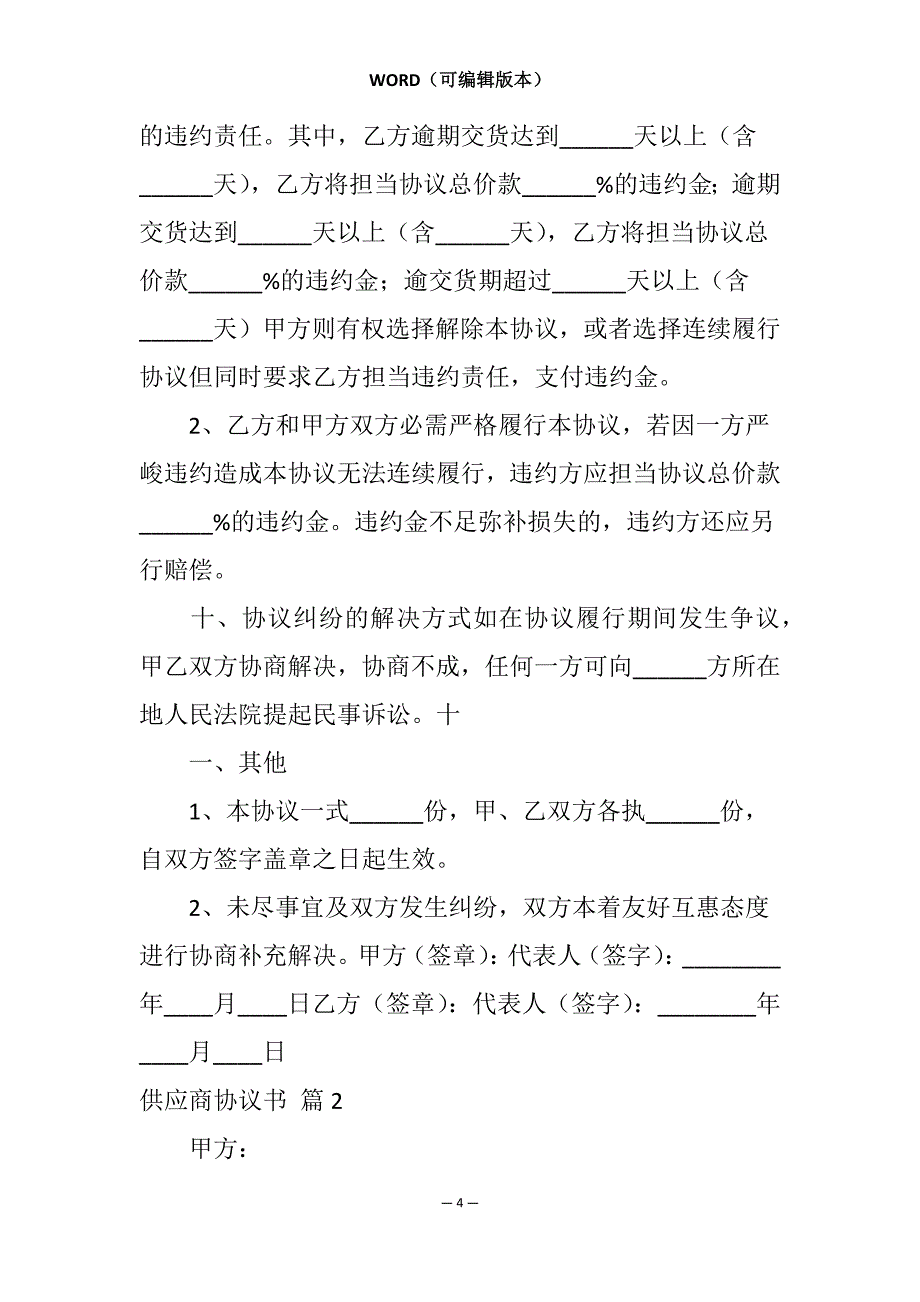 WORD（可编辑版本）
的违约责任。其中，乙方逾期交货达到______天以上（含
______天），乙方将担当协议总价款______%的违约金；逾期
交货达到______天以上（含______天），乙方将担当协议总
价款______%的违约金；逾交货期超过______天以上（含
______天）甲方则有权选择解除本协议，或者选择连续履行
协议但同时要求乙方担当违约责任，支付违约金。
2、乙方和甲方双方必需严格履行本协议，若因一方严
峻违约造成本协议无法连续履行，违约方应担当协议总价款
______%的违约金。违约金不足弥补损失的，违约方还应另
行赔偿。
十、协议纠纷的解决方式如在协议履行期间发生争议，
甲乙双方协商解决，协商不成，任何一方可向______方所在
地人民法院提起民事诉讼。十
一、其他
1、本协议一式______份，甲、乙双方各执______份，
自双方签字盖章之日起生效。
2、未尽事宜及双方发生纠纷，双方本着友好互惠态度
进行协商补充解决。甲方（签章）：代表人（签字）：________
年____月____日乙方（签章）：代表人（签字）：________年
____月____日
供应商协议书 篇2
甲方：
— 4 —